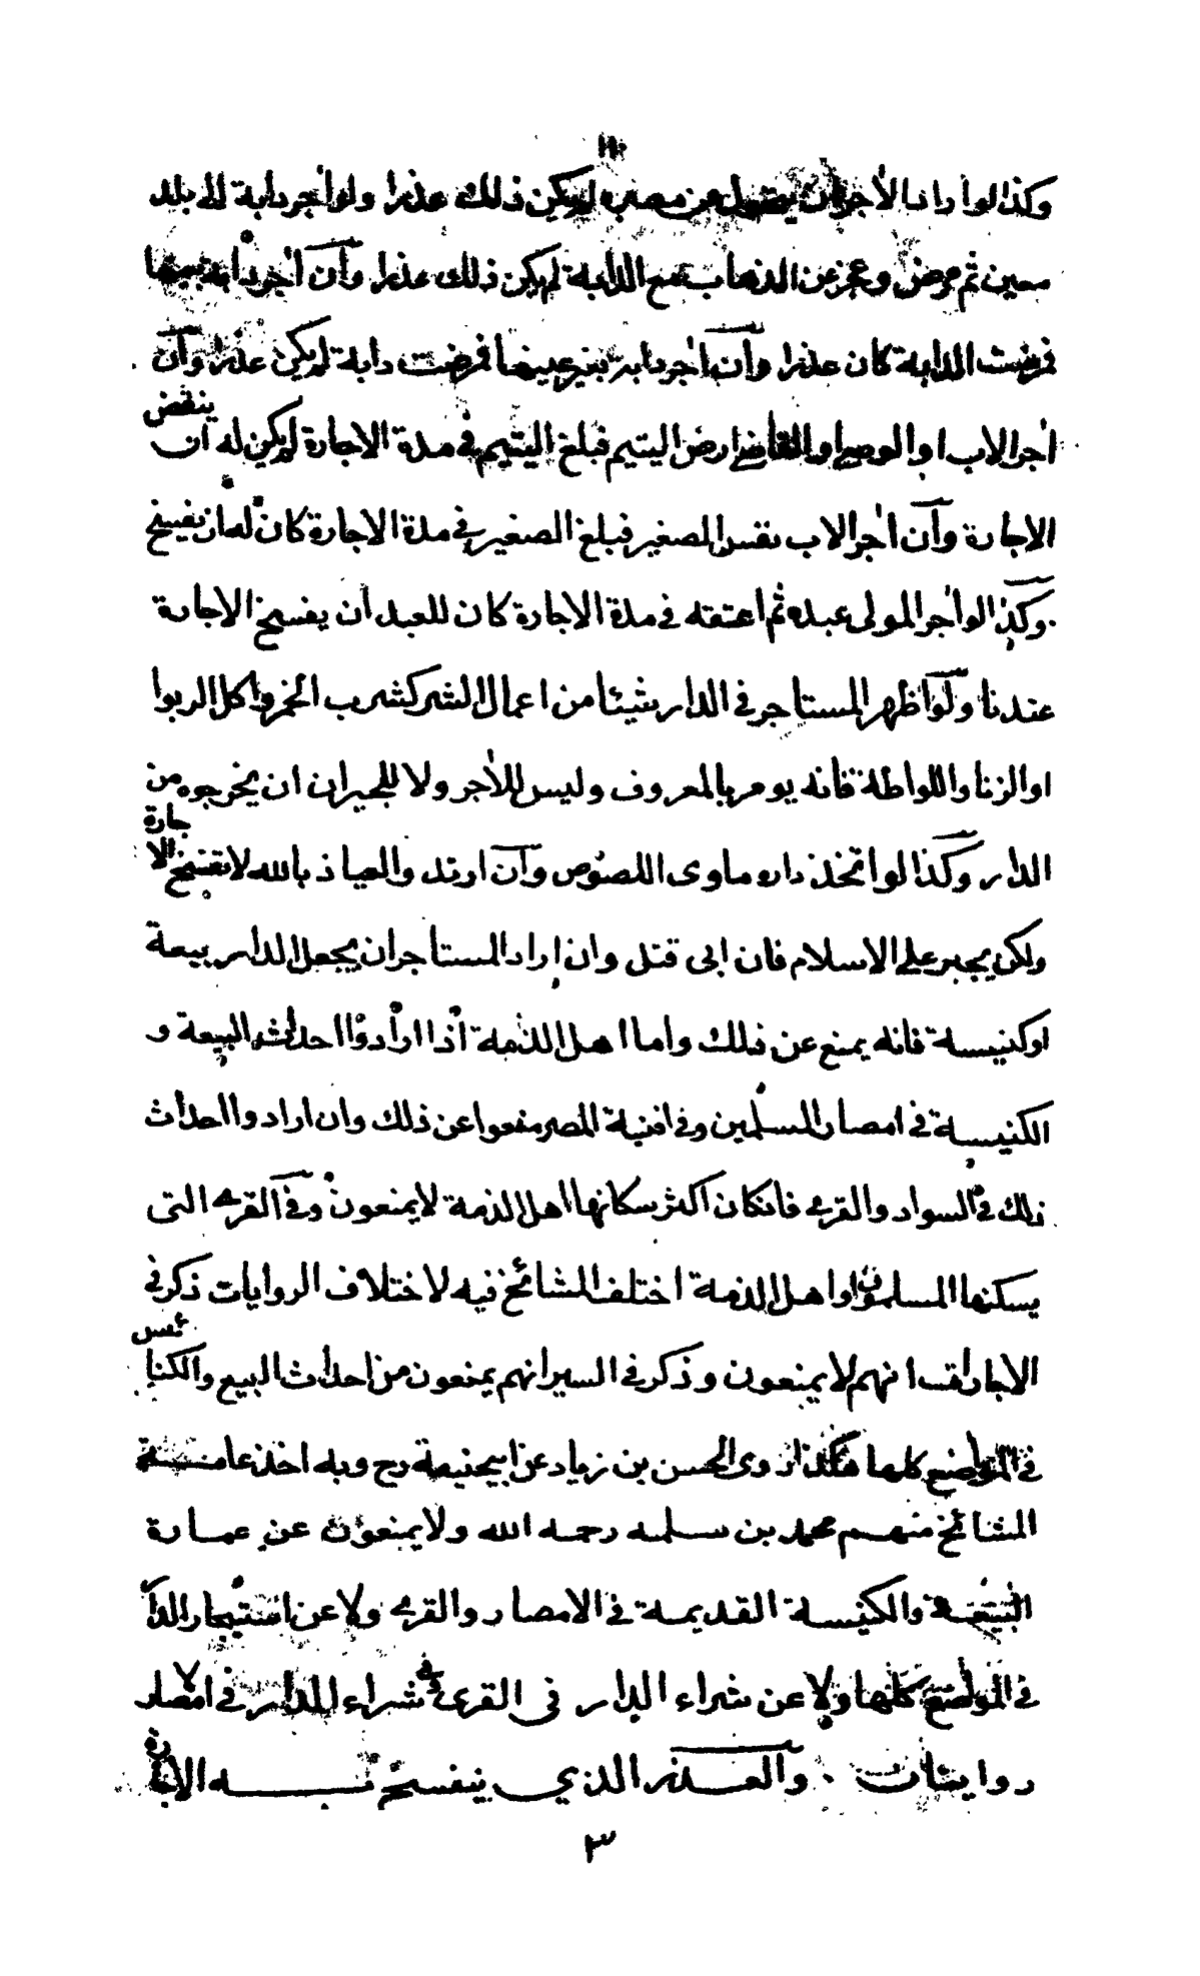 وكذا لو اراد الآجر ان يتحول من مصره لم يكن ذلك عذرا ولو آجر دابة الى بلد
معين ثم مرض وعجز عن الذهاب مع الدابة لم يكن ذلك عذرا وآن آجر دابة بعينها
فمرضت الدابة كان عذرا وآن آجر دابة بغير عينها فمرضت دابة لم يكن عذرا وآن
آجر الاب او الوصي او القاضي ارض اليتيم فبلغ اليتيم في مدة الاجارة لم يكن له ان ينقض
الاجارة وآن آجر الاب نفس الصغير فبلغ الصغير في مدة الاجارة كان له ان يفسخ
وكذا لو آجر المولى عبده ثم اعتقه في مدة الاجارة كان للعبد ان يفسخ الاجارة
عندنا ولو اظهر المستاجر في الدار شيئا من اعمال الشر كشرب الخمر واكل الربوا
او الزنا واللواطة فانه يومر بالمعروف وليس للآجر ولا للجيران ان يخرجوه من
الدار وكذا لو اتخذ داره ماوى اللصوص وآن ارتد والعياذ بالله لا تفسخ الاجارة
ولكن يجبر على الاسلام فان ابى قتل وان اراد المستأجر ان يجعل الدار بيعة
او كنيسة فانه يمنع عن ذلك واما اهل الذمة اذا ارادوا احداث البيعة و
الكنيسة في امصار المسلمين وفي افنية المصر منعوا عن ذلك وان ارادوا احداث
ذلك في السواد والقرى فان كان اكثر سكانها اهل الذمة لا يمنعون وفي القرى التي
يسكنها المسلمون او اهل الذمة اختلف المشائخ فيه لاختلاف الروايات ذكر في
الاجارات انهم لا يمنعون وذكر في السير انهم يمنعون من احداث البيع والكنائس
في المواضع كلها هكذا روى الحسن بن زياد عن ابيحنيفة رح وبه اخذ عامة
المشائخ منهم محمد بن سلمه رحمه الله ولا يمنعون عن عمارة
البيعة والكنيسة القديمة في الامصار والقرى ولا عن استيجار الدار
في المواضع كلها ولا عن شراء الدار في القرى وفي شراء الدار في الامصار
روايتان . والعذر الذي ينفسخ به الاجارة
٣